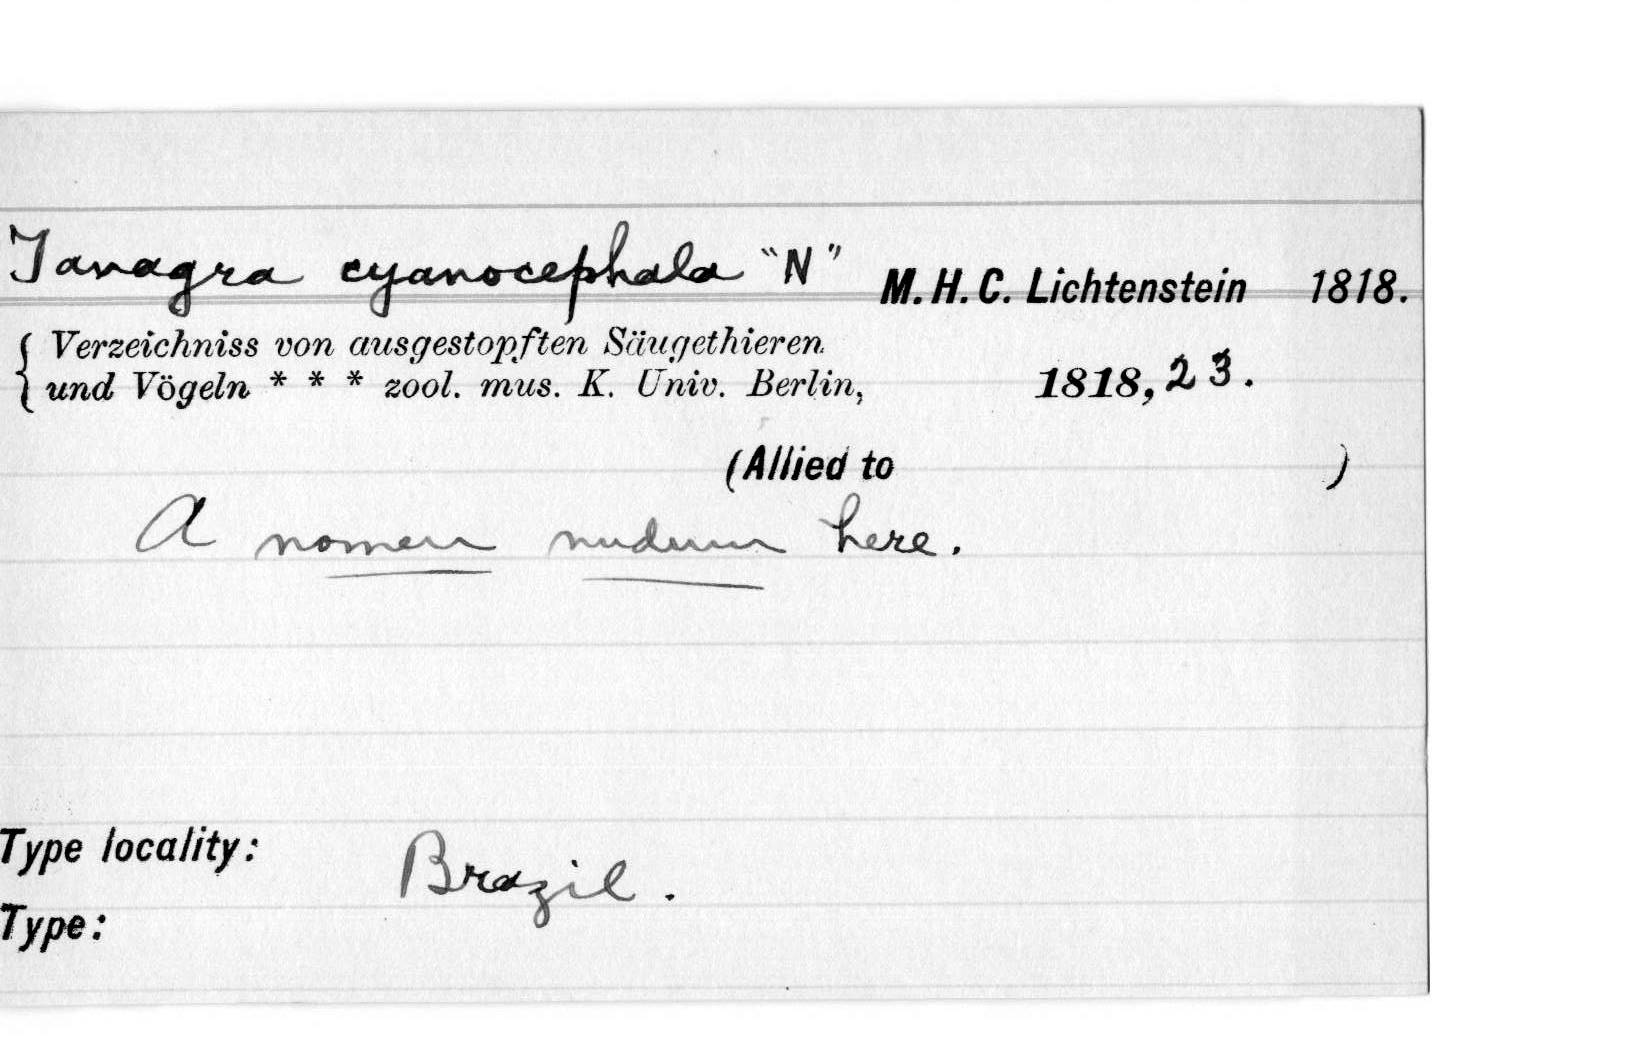 Tanagra cyanocephala "N" M. H. C. Lichtenstein 1818.
{ Verzeichniss von ausgestopften Säugethieren
und Vögeln * * * zool. mus. K. Univ. Berlin, 1818, 23.
(Allied to )
A nomen nudum here.
Type locality: Brazil.
Type: